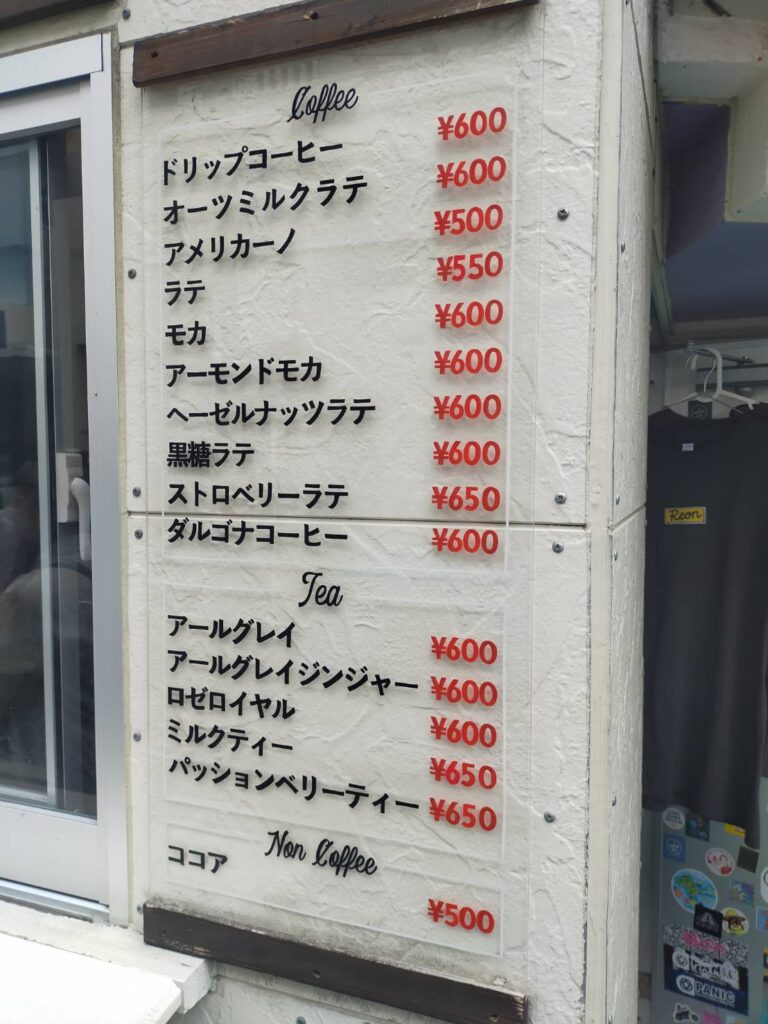 Coffee
ドリップコーヒー ¥600
オーツミルクラテ ¥600
アメリカーノ ¥500
ラテ ¥550
モカ ¥600
アーモンドモカ ¥600
ヘーゼルナッツラテ ¥600
黒糖ラテ ¥600
ストロベリーラテ ¥650
ダルゴナコーヒー ¥600
Tea
アールグレイ ¥600
アールグレイジンジャー ¥600
ロゼロイヤル ¥600
ミルクティー ¥650
パッションベリーティー ¥650
Non Coffee
ココア ¥500
Reon
PANIC
PANIC